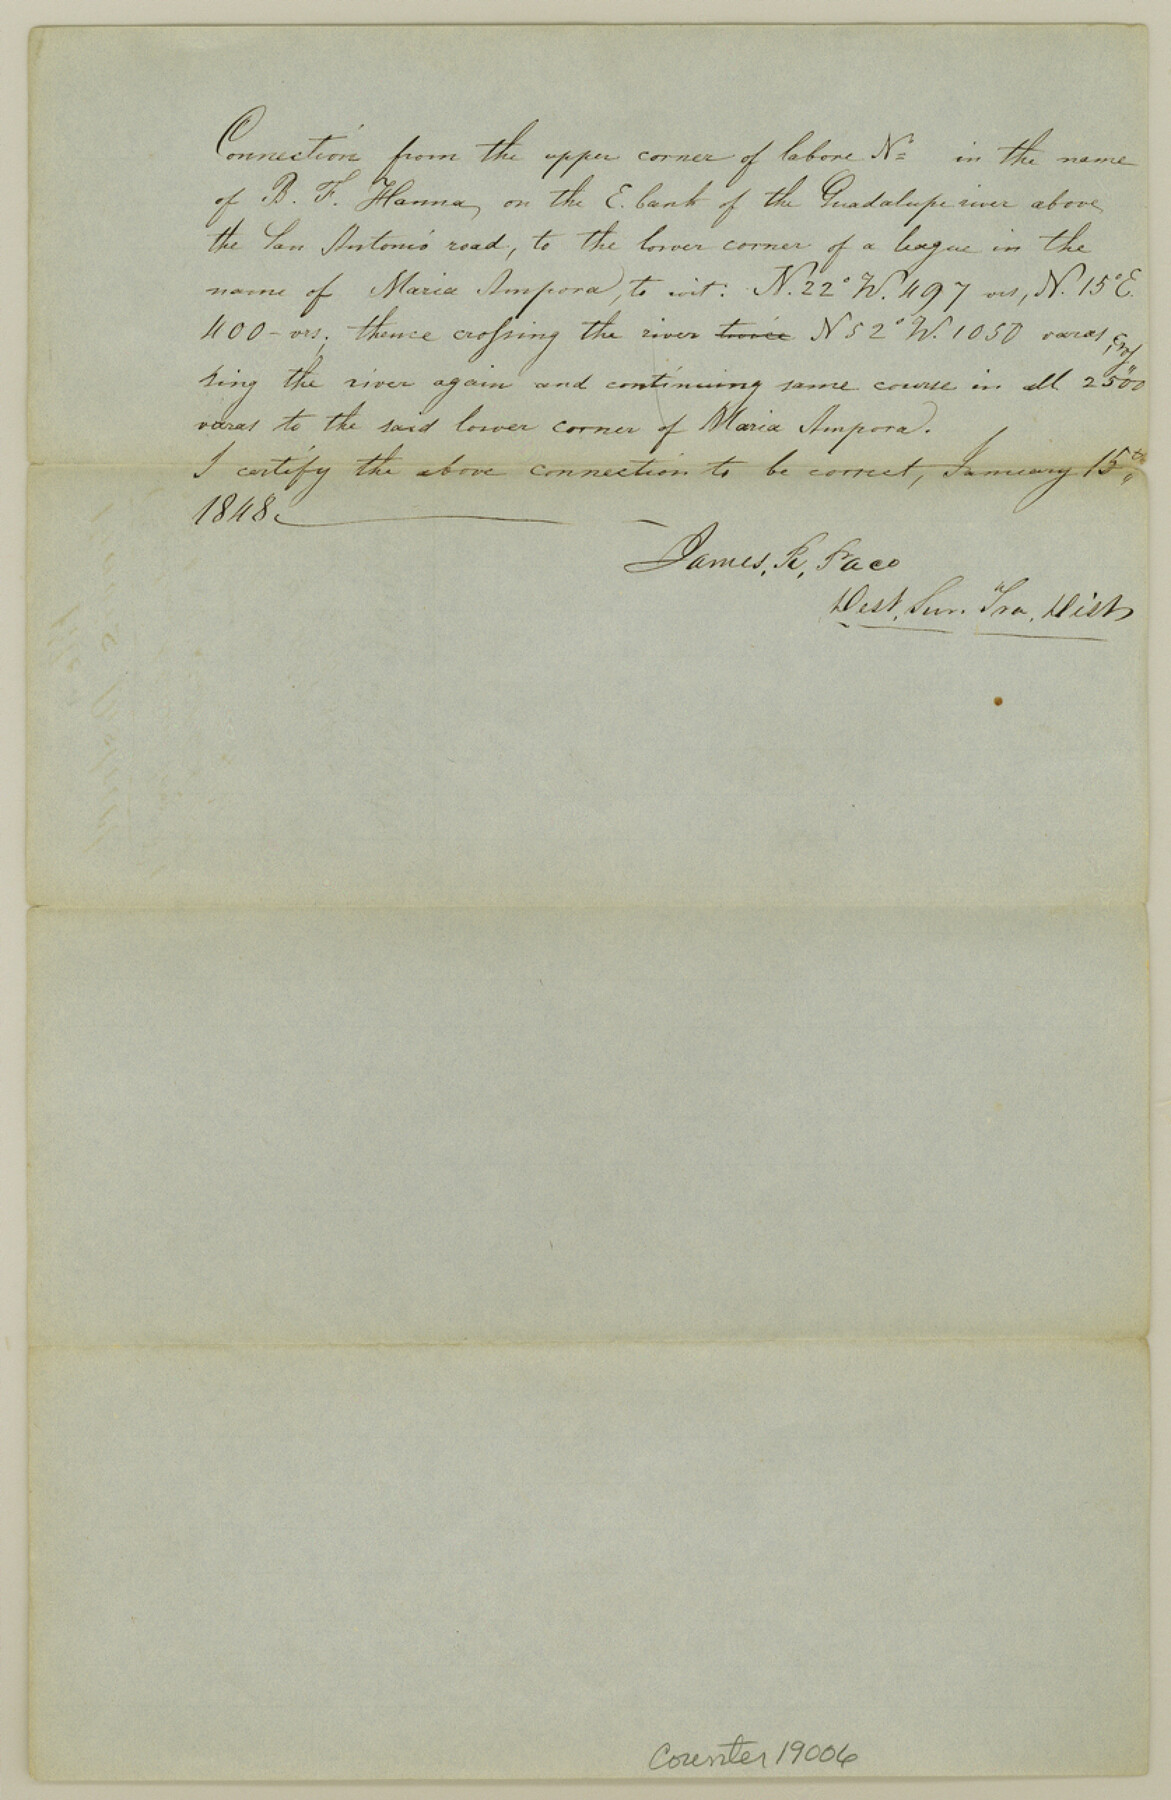 Connection from the upper corner of labore No in the name
of B. F. Hanna, on the E. bank of the Guadalupe river above
the San Antonio road, to the lower corner of a league in the
name of Maria Ampora, to wit: N. 22° W. 497 vrs, N. 15° E.
400 - vrs; thence crossing the river twice N 52° W. 1050 varas, cros
sing the river again and continuing same course in all 2500
varas to the said lower corner of Maria Ampora.
I certify the above connection to be correct, January 15th
1848.
James, R, Pace
Dest, Sur. Tra, Dist
Counter 19006